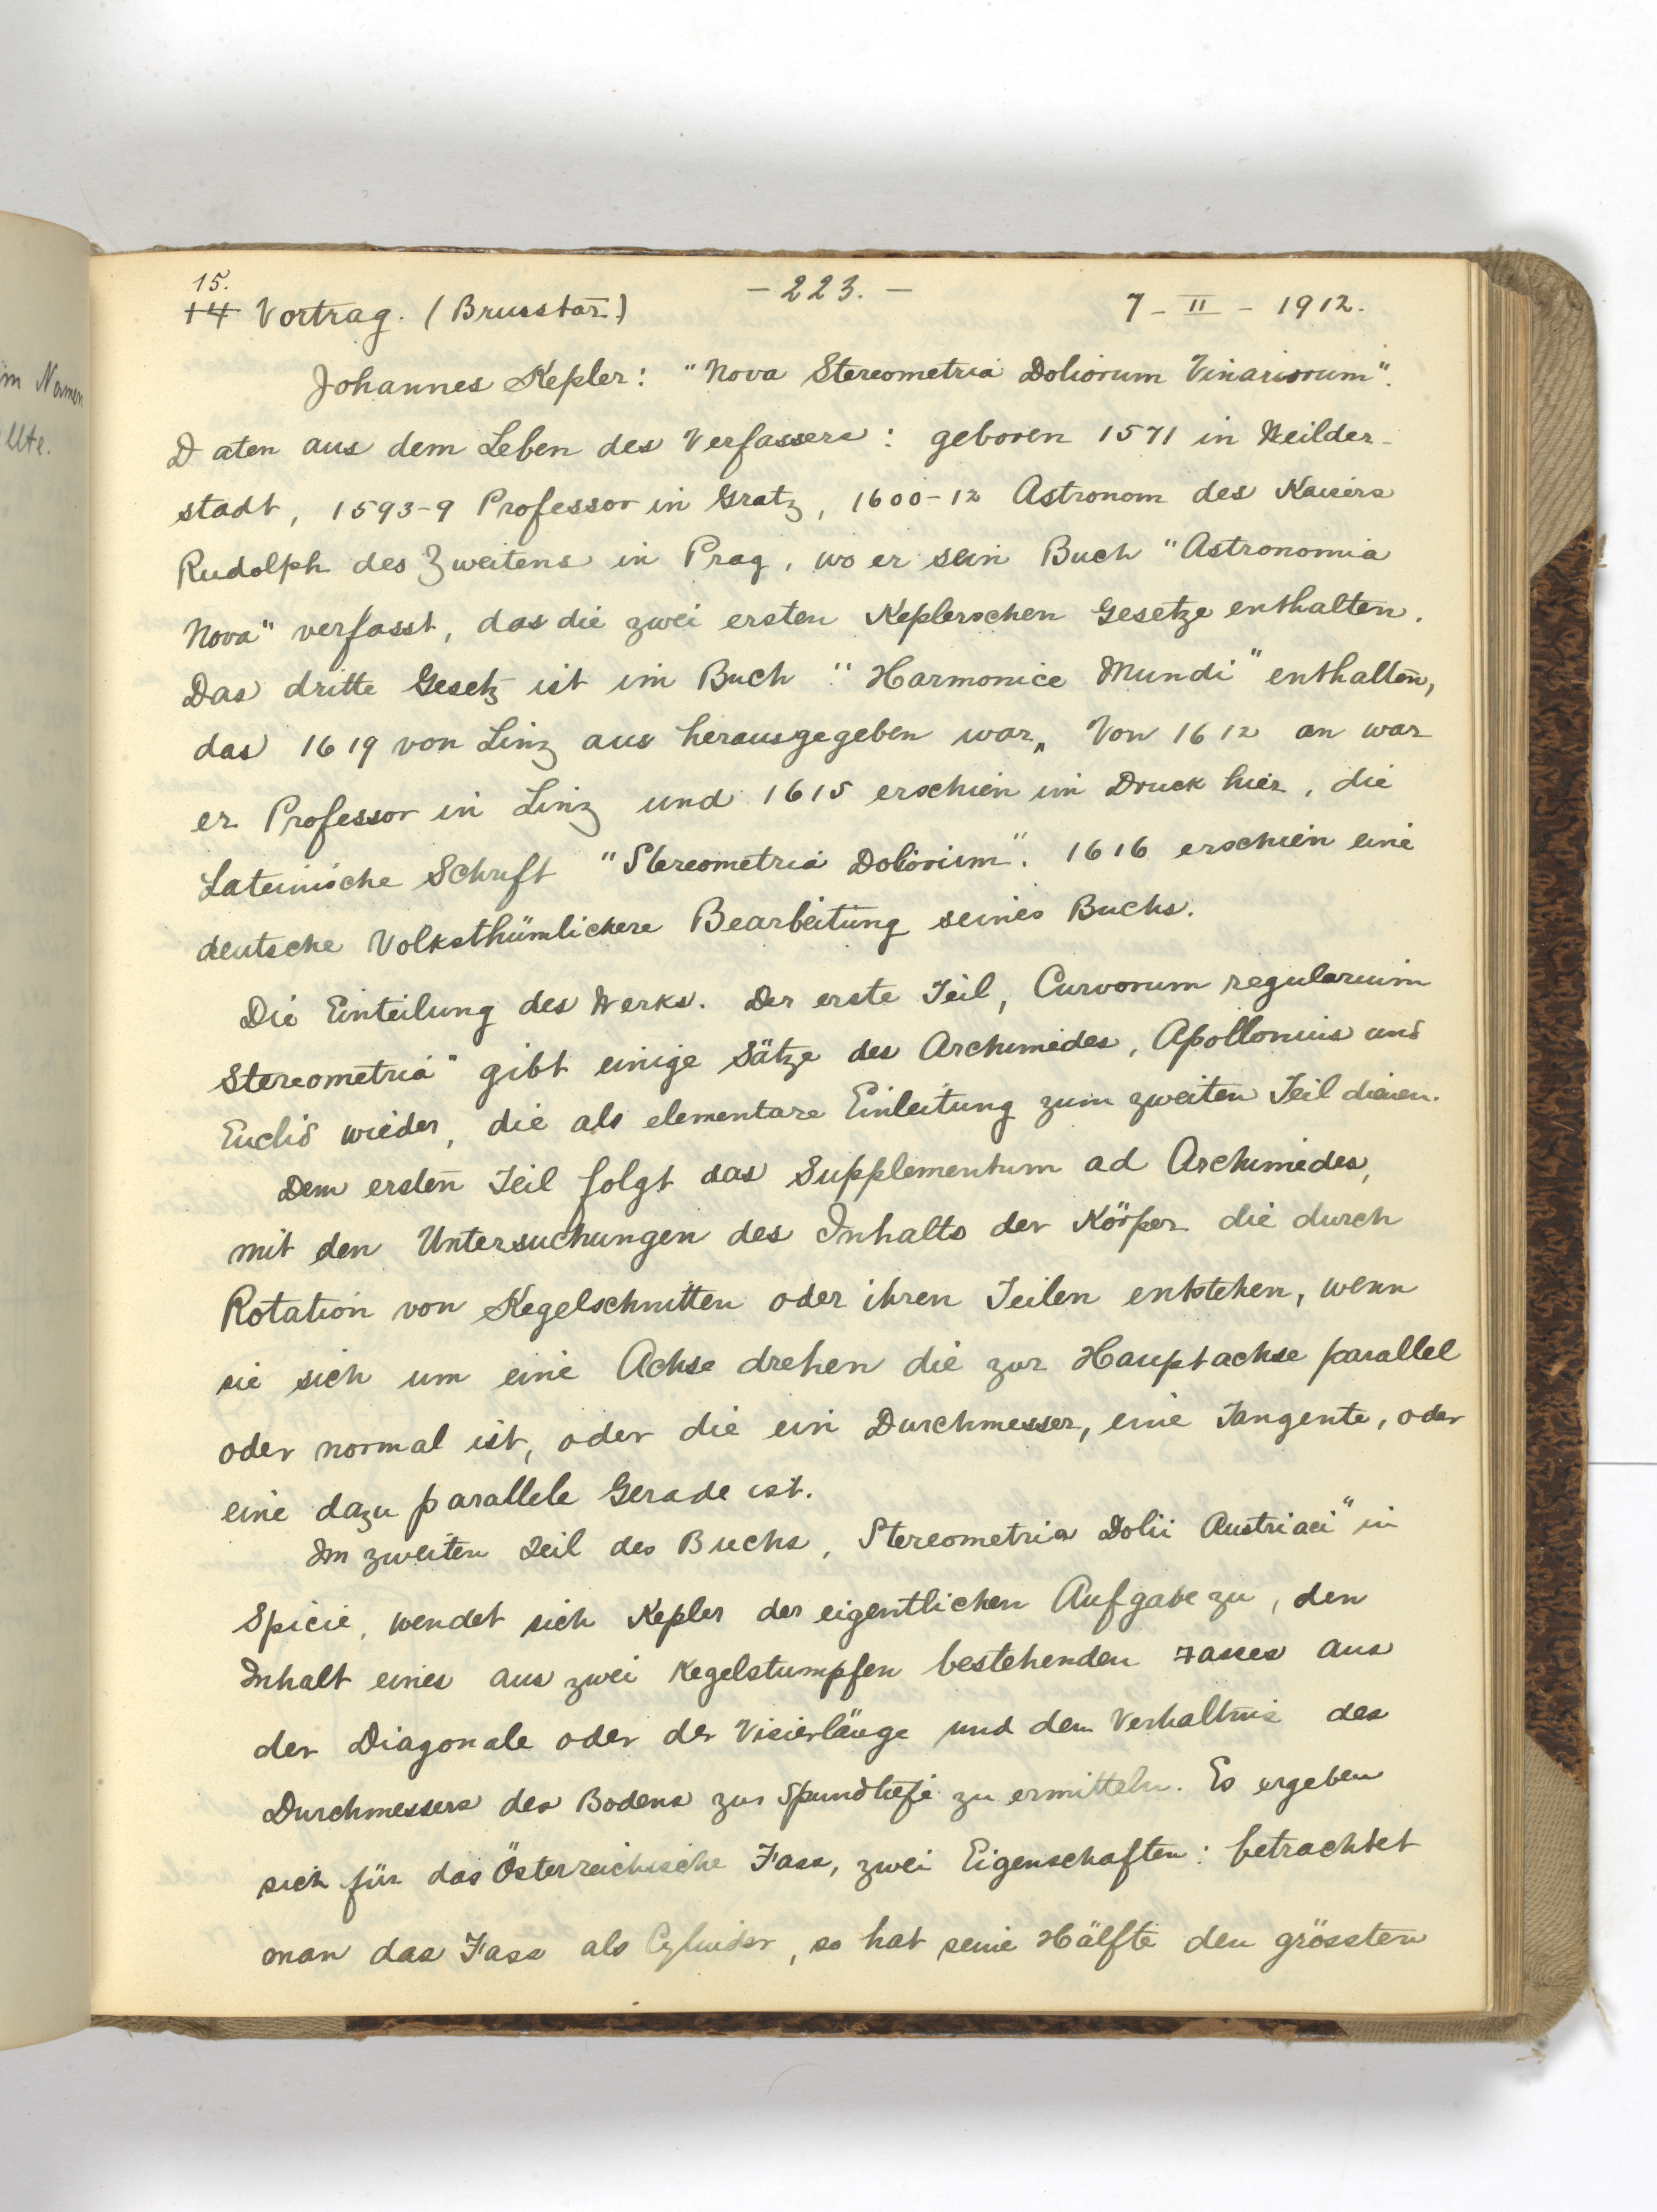 im Namen
llte.
15.
14 Vortrag. (Brusstar.)
- 223. -
7 - II - 1912.
Johannes Kepler: "Nova Stereometria Doliorum Vinariorum".
Daten aus dem Leben des Verfassers: geboren 1571 in Weilder-
stadt, 1593-9 Professor in Gratz, 1600-12 Astronom des Kaisers
Rudolph des Zweitens in Prag, wo er sein Buch "Astronomia
Nova" verfasst, das die zwei ersten Keplerschen Gesetze enthalten.
Das dritte Gesetz ist im Buch "Harmonice Mundi" enthalten,
das 1619 von Linz aus herausgegeben war. Von 1612 an war
er Professor in Linz und 1615 erschien im Druck hier, die
Lateinische Schrift "Stereometria Doliorum". 1616 erschien eine
deutsche Volksthümlichere Bearbeitung seines Buchs.
Die Einteilung des Werks. Der erste Teil, Curvorum regularium
Stereometria" gibt einige Sätze des Archimedes, Apollonius und
Euclid wieder, die als elementare Einleitung zum zweiten Teil dienen.
Dem ersten Teil folgt das Supplementum ad Archimedes,
mit den Untersuchungen des Inhalts der Körper die durch
Rotation von Kegelschnitten oder ihren Teilen entstehen, wenn
sie sich um eine Achse drehen die zur Hauptachse parallel
oder normal ist, oder die ein Durchmesser, eine Tangente, oder
eine dazu parallele Gerade ist.
Im zweiten Teil des Buchs, Stereometria Dolii Austriaci" in
Spicie, wendet sich Kepler der eigentlichen Aufgabe zu, den
Inhalt eines aus zwei Kegelstumpfen bestehenden Fasses aus
der Diagonale oder der Visierlänge und dem Verhaltnis des
Durchmessers des Bodens zur Spundtiefe zu ermitteln. Es ergeben
sich für das Österreichische Fass, zwei Eigenschaften: betrachtet
man das Fass als Cylinder, so hat seine Hälfte den grössten